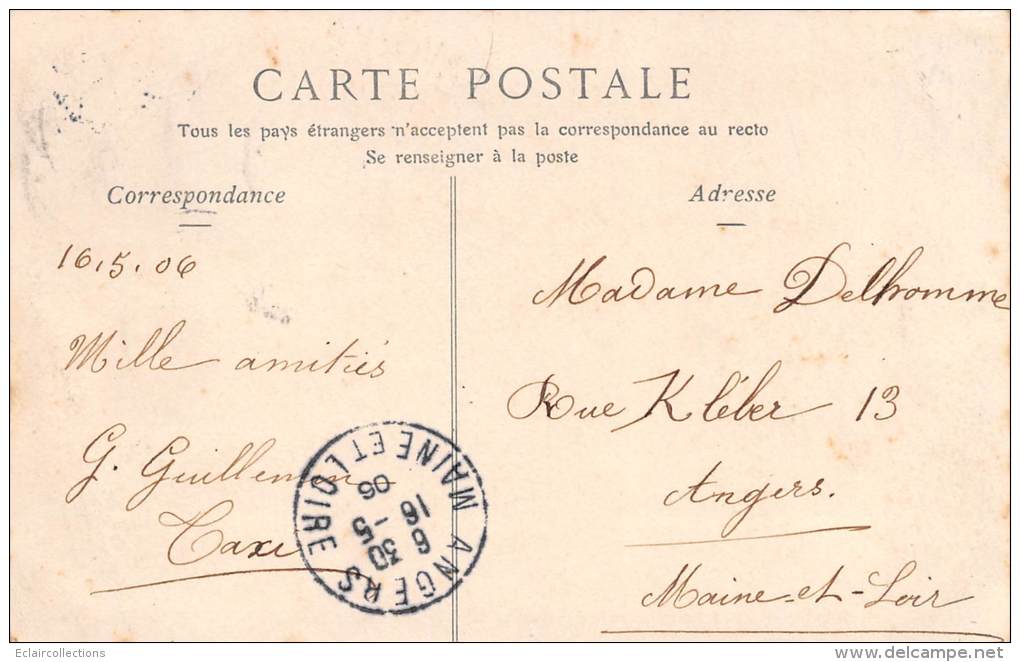 CARTE POSTALE
Tous les pays étrangers n'acceptent pas la correspondance au recto
Se renseigner à la poste
Correspondance
16.5.06
Mille amitiés
G. Guillemin
Adresse
Madame Delhomme
Rue Kléber 13
Angers.
Maine-et-Loir
ANGERS
MAINE ET LOIRE
6 30
16 - 5
06
Eclaircollections
www.delcampe.net